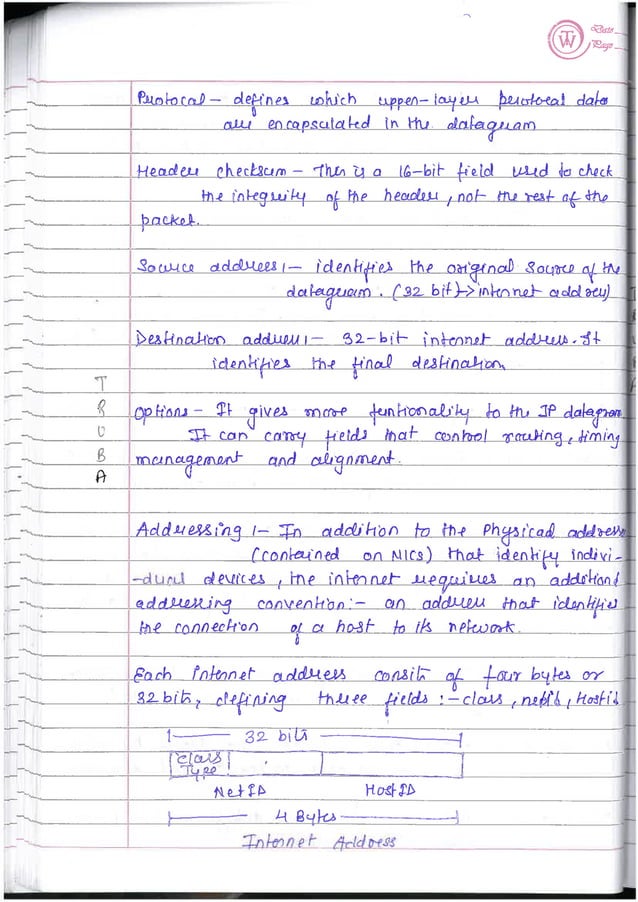 Date
Page
Protocol - defines which upper-layer protocol data
are encapsulated in the datagram
Header checksum - This is a 16-bit field used to check
the integrity of the header, not the rest of the
packet.
Source address :- identifies the original source of the
datagram. (32 bit) -> internet addres)
Destination address :- 32-bit internet address. It
identifies the final destination
Options - It gives more funtionality to the IP datagram
It can carry fields that control routing, timing
management and alignment.
T
R
U
B
A
Addressing :- In addition to the Physical address
(contained on NICs) that identify indivi-
-dual devices, the internet requires an additional
addressing convention:- an address that identifies
the connection of a host to its network.
Each Internet address consits of four bytes or
32 bits, defining three fields :- class, netid, Hostid
32 bits
Class
Type
NetID HostID
4 Bytes
Internet Address